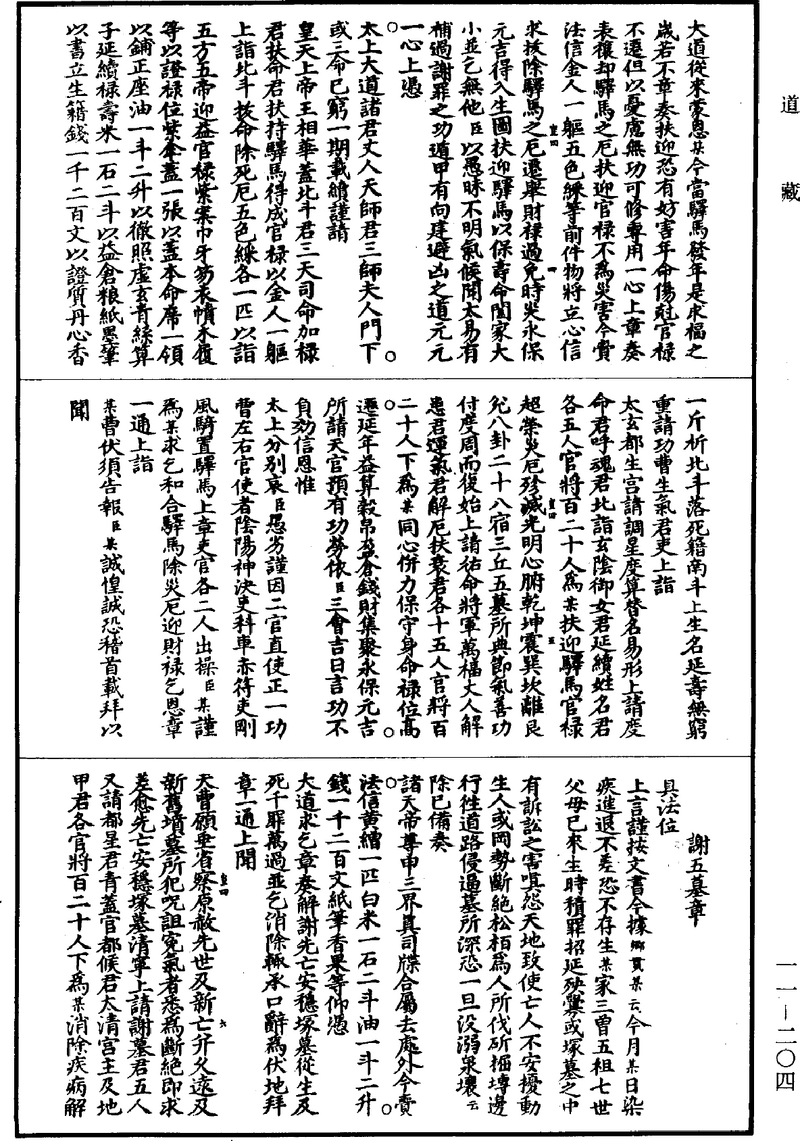 道藏
一一—二〇四
大道從來蒙恩某今當驛馬發年是求福之
歲若不章奏扶迎恐有妨害年命傷尅官祿
不遷但以憂慮無功可修專用一心上章奏
表穰却驛馬之厄扶迎官祿不爲災害今賫
法信金人一軀五色綵等前件物將立心信
求拔除驛馬之厄遷舉財祿過免時災永保
元吉得入生圖扶迎驛馬以保壽命闔家大
小並乞無他臣以愚昧不明氣候開太易有
補過謝罪之功遁甲有向建避凶之道元元
一心上憑
太上大道諸君丈人天師君三師夫人門下
或三命已窮一期載續謹請
皇天上帝王相華蓋北斗君三天司命加祿
君扶命君扶持驛馬得成官祿以金人一軀
上詣北斗拔命除死厄五色綵各一匹以詣
五方五帝迎益官祿紫案巾牙笏衣幘木履
等以證祿位紫傘蓋一張以蓋本命席一領
以鋪正座油一斗二升以徹照虛玄青絲算
子延續祿壽米一石二斗以益倉粮紙墨筆
以書立生籍錢一千二百文以證質丹心香
一斤析北斗落死籍南斗上生名延壽無窮
重請功曹生氣君吏上詣
太玄都生宮請調星度算替名易形上請度
命君呼魂君北詣玄陰御女君延續姓名君
各五人官將百二十人爲某扶迎驛馬官祿
超榮災厄殄滅光明心腑乾坤震巽坎離艮
兊八卦二十八宿三丘五墓所典節氣善功
付度周而復始上請祐命將軍萬福丈人解
患君運氣君解厄扶衰君各十五人官將百
二十人下爲某同心併力保守身命祿位高
遷延年益算穀帛盈倉錢財集聚永保元吉
所請天官預有功勞依臣三會吉日言功不
負効信恩惟
太上分別哀臣愚劣謹因二官直使正一功
曹左右官使者陰陽神決吏科車赤符吏剛
風騎置驛馬上章吏官各二人出操臣某謹
爲某求乞和合驛馬除災厄迎財祿乞恩章
一通上詣
某曹伏須告報臣某誠惶誠恐稽首載拜以
聞
謝五墓章
具法位
上言謹按文書今據鄉貫某云今月某日染
疾進退不差恐不存生某家三曾五祖七世
父母已來生時積罪招延殃釁或塚墓之中
有訴訟之害嗔怨天地致使亡人不安擾動
生人或岡勢斷絕松栢爲人所伐斫掘塼邊
行徃道路侵逼墓所深恐一旦没溺泉壤云
除已備奏
諸天帝尊申三界真司牒合屬去處外今賫
法信黄繒一匹白米一石二斗油一斗二升
錢一千二百文紙筆香果等仰憑
大道求乞章奏解謝先亡安穩塚墓從生及
死千罪萬過並乞消除輙承口辭爲伏地拜
章一通上聞
天曹願垂省察原赦先世及新亡并久遠及
新舊墳墓所犯呪詛寃氣者悉爲斷絕即求
差愈先亡安穩塚墓清寧上請謝墓君五人
又請都星君青蓋官都候君太清宮主及地
甲君各官將百二十人下爲某消除疾病解